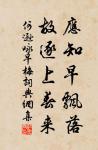 應知早飄落
故逐上春來
何遜詠早梅詞典網集